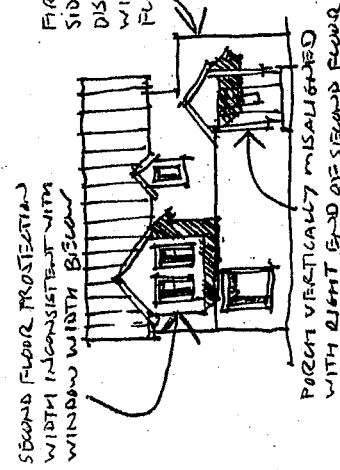 SECOND FLOOR PROJECTION
WIDTH INCONSISTENT WITH
WINDOW WIDTH BELOW
PORCH VERTICALLY MISALIGNED
WITH RIGHT END OF SECOND FLOOR